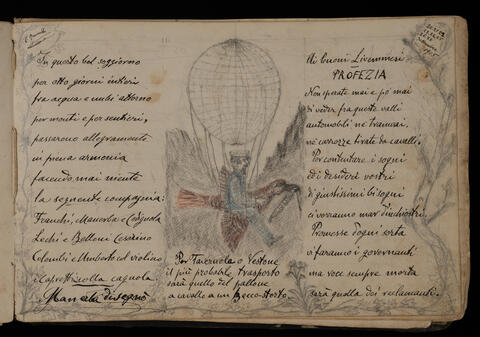 In questo bel soggiorno
per otto giorni intieri
fra acqua e nubi attorno
per monti e per sentieri,
passarono allegramente
in piena armonia
facendo mai niente
la seguente compagnia:
Franchi, Manerba e Cargnola
Lechi e Belloni Cesarino
Colombi e Umberto col violino
e Capretti colla cagnola
Manerba disegnò
Per Tavernola o Vestone
il più probabile trasporto
sarà quello del pallone
a cavallo a un becco-storto
Ai buoni Livemmesi
PROFEZIA
Non sperate mai e pô mai
di veder fra queste valli
automobili nè tramvai,
nè carrozze tirate da cavalli.
Per contentare i sogni
di desideri vostri
di giustissimi bisogni
ci vorranno mar d'inchiostri.
Promesse d'ogni sorta
vi faranno i governanti
ma voce sempre morta
sarà quella dei reclamanti.